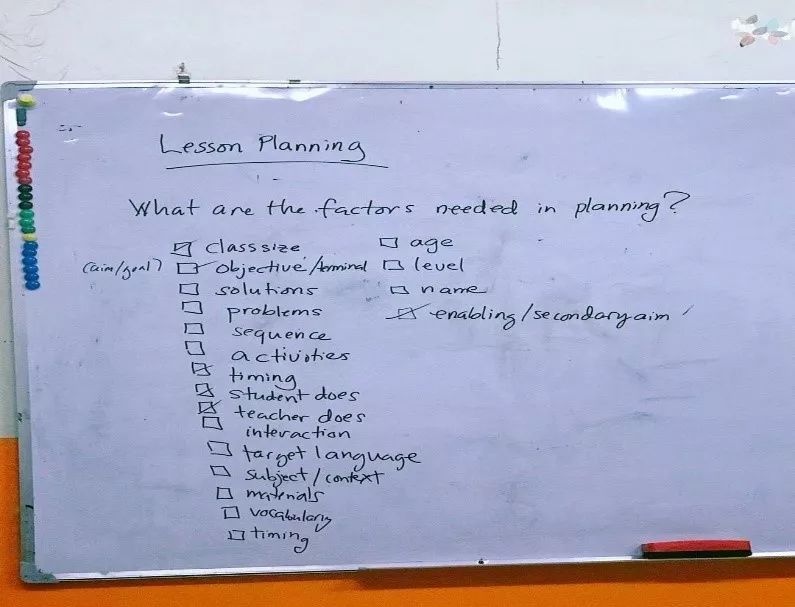 Lesson Planning
What are the factors needed in planning?
class size
(aim/goal) objective/terminal
solutions
problems
sequence
activities
timing
student does
teacher does
interaction
target language
subject/context
materials
vocabulary
timing
age
level
name
enabling/secondary aim